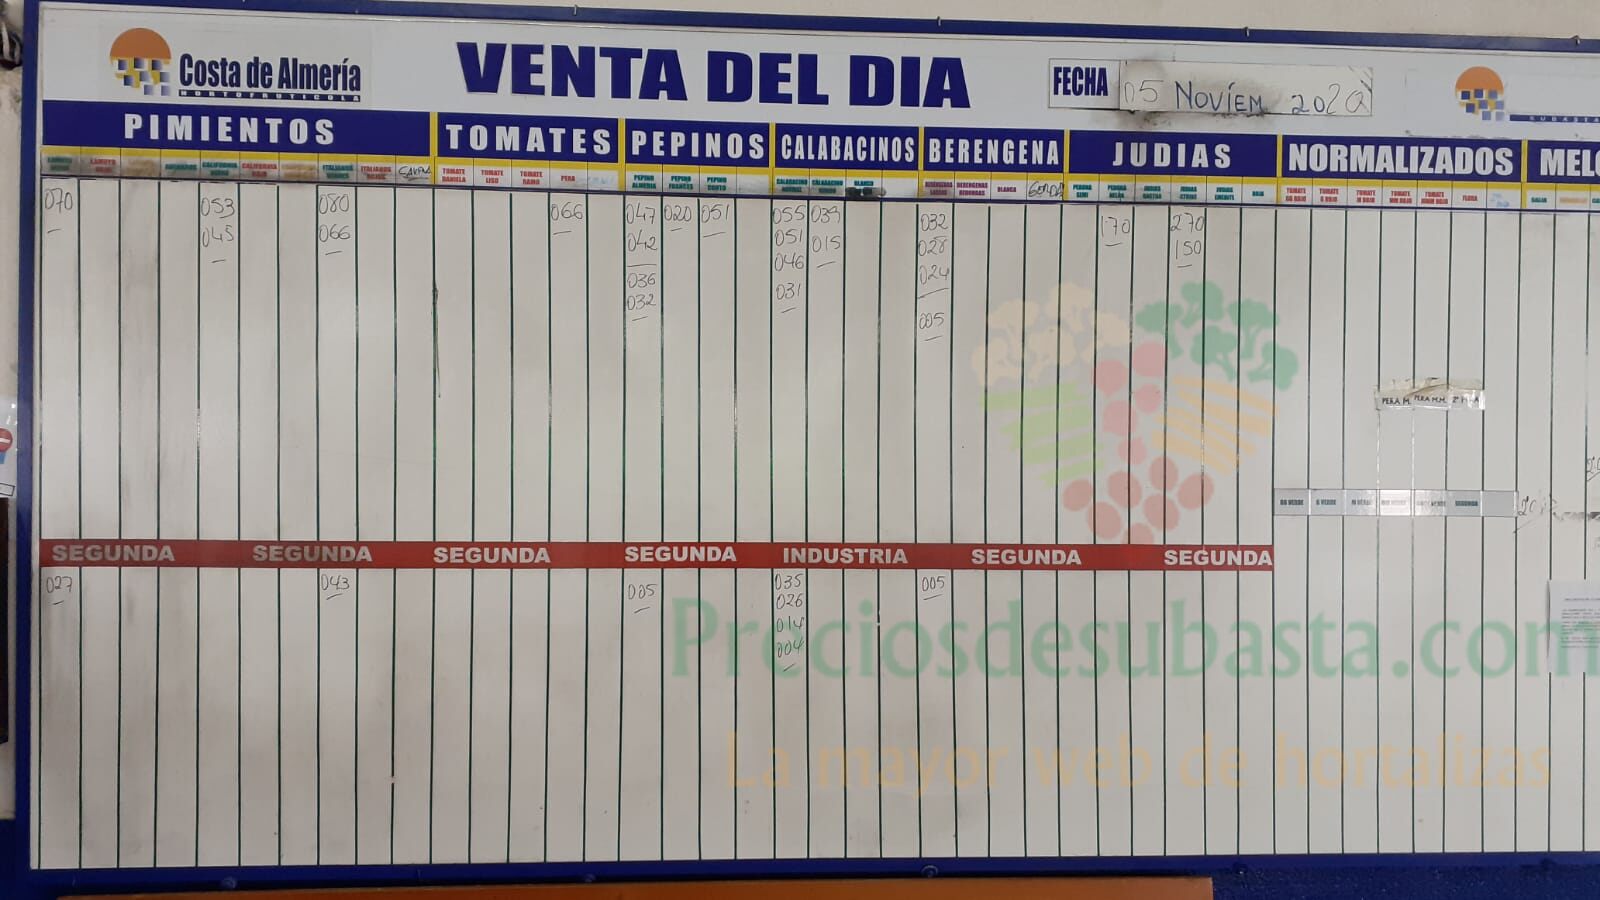 Costa de Almería
HORTOFRUTICOLA
VENTA DEL DIA
FECHA
05 NovíEM 2020
SUBASTA
PIMIENTOS
TOMATES
PEPINOS
CALABACINOS
BERENGENA
JUDIAS
NORMALIZADOS
MELO
LAMUYO
LAMUYO
CALIFORNIA
CALIFORNIA ROJO
ITALIANOS
ITALIANOS
TOMATE DANIELA
TOMATE LISO
TOMATE RAMO
PERA
PEPINO ALMERIA
PEPINO FRANCES
PEPINO CORTO
CALABACINO
CALABACINO
BLANCO
BERENGENAS
BERENGENAS REDONDAS
BLANCA
GORDA
PERONA SEMI
JUDIAS
JUDIAS
JUDIAS
ROJA
TOMATE GG ROJO
TOMATE G ROJO
TOMATE M ROJO
TOMATE MM ROJO
TOMATE
GALIA
070
053
080
066
047
020
051
055
039
032
170
270
045
066
042
051
015
028
150
046
024
036
031
032
005
PERA M.
PERA M.M.
GG VERDE
G VERDE
M VERDE
MM VERDE
SEGUNDA
SEGUNDA
SEGUNDA
SEGUNDA
SEGUNDA
INDUSTRIA
SEGUNDA
SEGUNDA
027
043
005
035
005
026
014
004
Preciosdesubasta.com
La mayor web de hortalizas